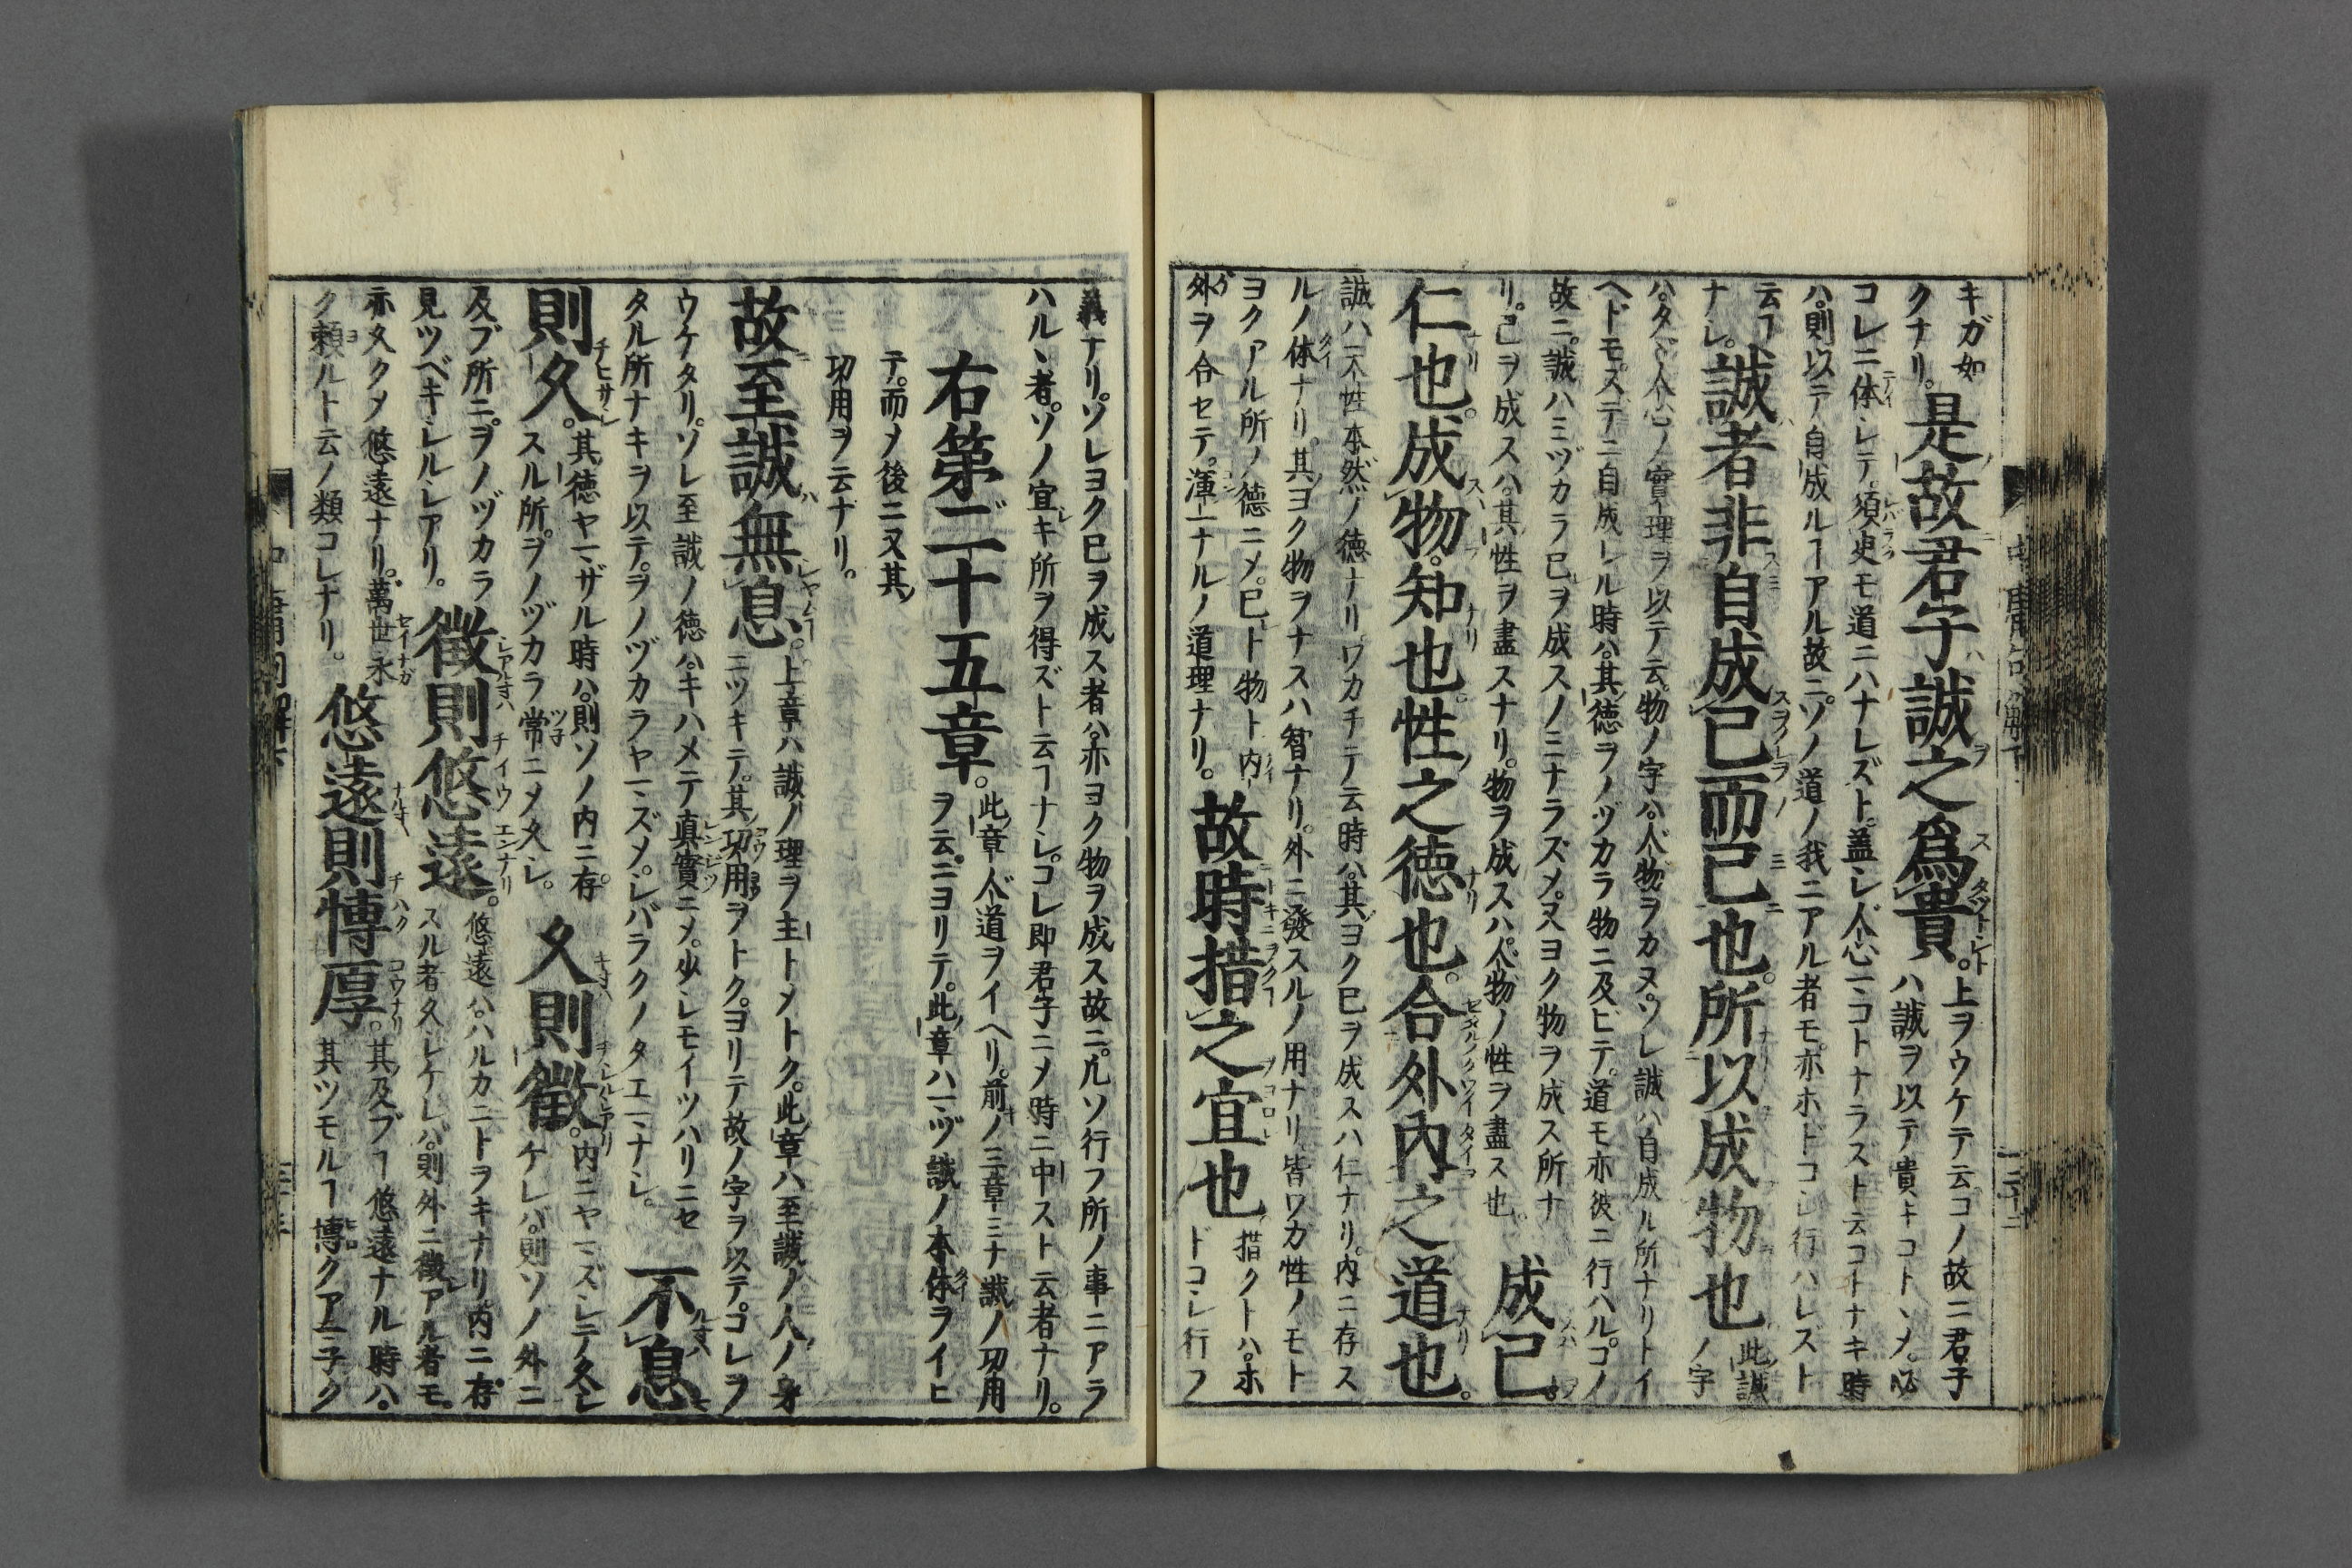 キガ如
クナリ。是故君子誠之爲貴。上ヲウケテ云コノ故ニ君子
ハ誠ヲ以テ貴キコトヽメ。必
コレニ体シテ。須臾モ道ニハナレズト。蓋シ人心一ヽコトナラスト云コトナキ時
ハ。則以テ自成ルヿアル故ニ。ソノ道ノ我ニアル者モ。亦ホドコシ行ハレズト
云ヿ
ナシ。誠者非自成己而已也。所以成物也此誠
ノ字
ハ。タヾ人心ノ實理ヲ以テ云。物ノ字ハ。人物ヲカヌ。ソレ誠ハ自成ル所ナリトイ
ヘドモ。スデニ自成レル時ハ。其徳ヲノヅカラ物ニ及ビテ。道モ亦彼ニ行ハル。コノ
故ニ。誠ハミヅカラ己ヲ成スノミナラズメ。又ヨク物ヲ成ス所ナ
リ。己ヲ成スハ。其性ヲ盡スナリ。物ヲ成スハ。人物ノ性ヲ盡ス也。成己。
仁也。成物。知也。性之徳也。合外內之道也。
誠ハ天性本然ノ徳ナリ。ワカチテ云時ハ。其ヨク己ヲ成スハ仁ナリ。内ニ存ス
ルノ体ナリ。其ヨク物ヲナスハ智ナリ。外ニ發スルノ用ナリ。皆ワカ性ノモト
ヨクアル所ノ徳ニメ。己ト物ト内
外ヲ合セテ。渾一ナルノ道理ナリ。故時措之宜也措クトハ。ホ
ドコシ行フ
義ナリ。ソレヨク己ヲ成ス者ハ。亦ヨク物ヲ成ス故ニ。凡ソ行フ所ノ事ニアラ
ハルヽ者。ソノ宜キ所ヲ得ズト云ヿナシ。コレ即君子ニメ時ニ中スト云者ナリ。
右第二十五章。此章人道ヲイヘリ。前ノ三章ミナ誠ノ功用
ヲ云ニヨリテ。此章ハ一ヅ誠ノ本体ヲイヒ
テ。而メ後ニ又其
功用ヲ云ナリ。
故至誠無息。上章ハ誠ノ理ヲ主トメトク。此章ハ至誠ノ人ノ身
ニツキテ。其功用ヲトク。ヨリテ故ノ字ヲ以テ。コレヲ
ウケタリ。ソレ至誠ノ徳ハ。キハメテ真實ニメ。少シモイツハリニセ
タル所ナキヲ以テ。ヲノヅカラヤマズメ。シバラクノタエマナシ。不息
則久。其徳ヤマザル時ハ。則ソノ内ニ存
スル所。ヲノヅカラ常ニメ久シ。久則徵。内ニヤマズシテ久シ
ケレバ。則ソノ外ニ
及ブ所ニ。ヲノヅカラ
見ツベキシルシアリ。徵則悠遠。悠遠ハ。ハルカニトヲキナリ内ニ存
スル者久シケレバ。則外ニ徵アル者モ。
亦久クメ悠遠ナリ。萬世永
ク頼ルト云ノ類コレナリ。悠遠則愽厚。其及ブヿ悠遠ナル時ハ。
其ツモルヿ博クアマ子ク